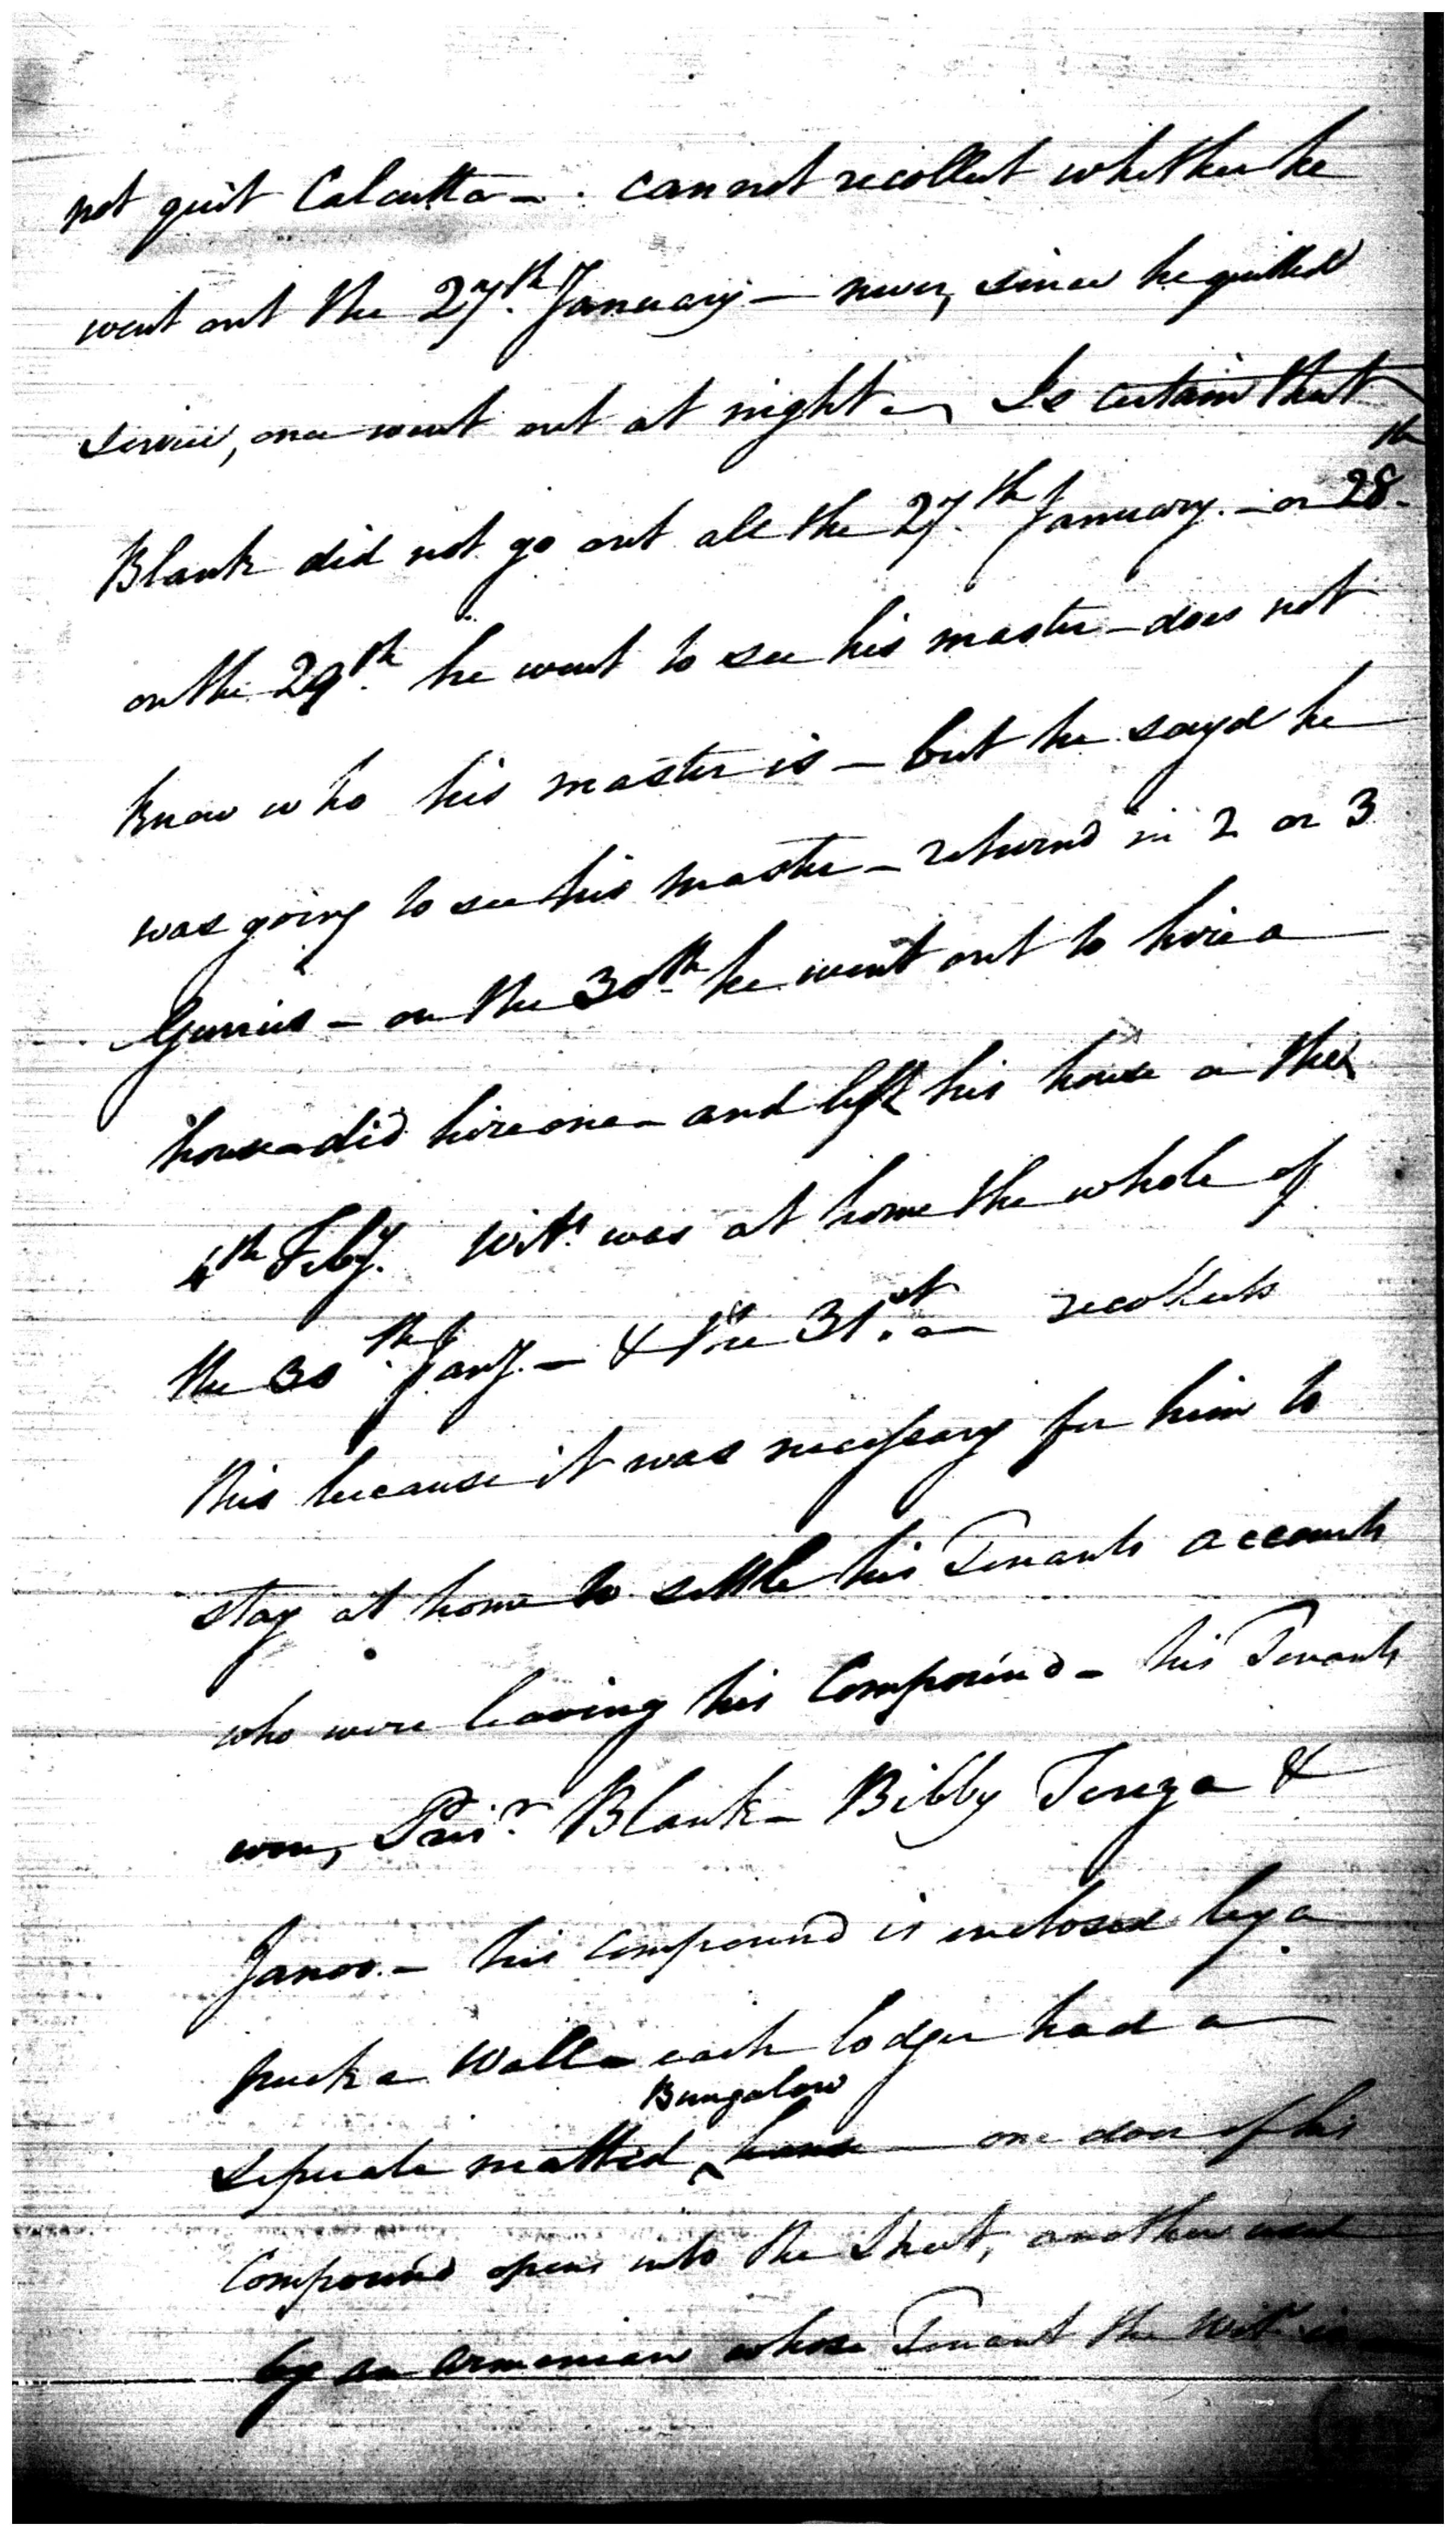 not quit Calcutta - . cannot recollect whether he
went out the 27th. January - never, since he quitted
service, once went out at night - Is certain that
Blank did not go out all the 27.th January. - or 28th.
on the 29th. he went to see his master - does not
know who his master is - but he sayd he
was going to see his master - returnd in 2 or 3
Gurries - on the 30th. he went out to hire a
house - did hire one - and left his house on the
4th Feby. Wits. was at home the whole of
the 30.th Jany. - & the 31.st - recollects
this because it was necessary for him to
stay at home to settle his Tenants accounts
who were leaving his Compound - his Tenants
were, Prisr. Blank - Bibby Tereza &
Janoo. - his compound is enclosed by a
pucka Wall - each lodger had a
seperate matted ^ Bungalow house - one door of his
Compound opens into the Street, another
by an Armenian whose Tenant the Wits. is